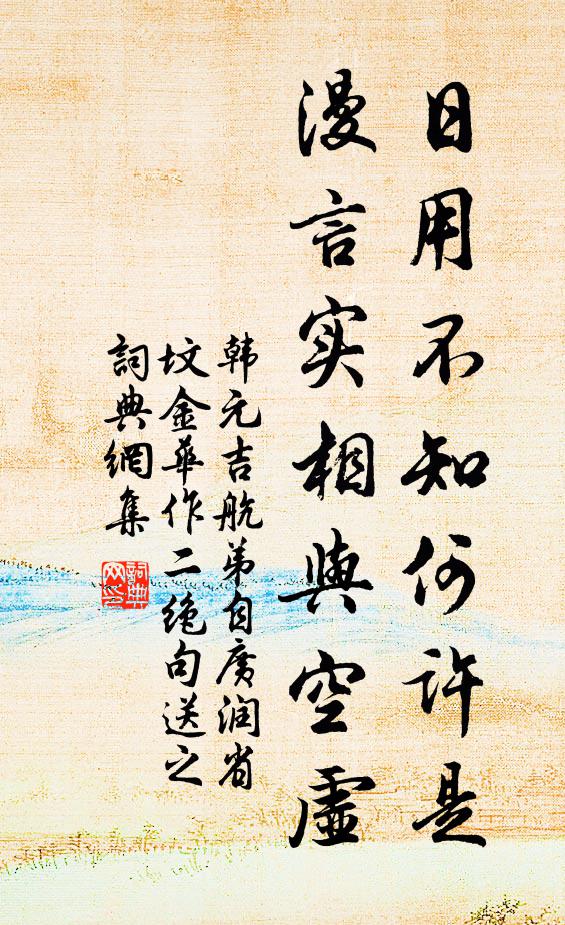 日用不知何許是
漫言实相與空虛
韩元吉航弟自廣润省
坟金華作二绝句送之
詞典網集
詞典
网印